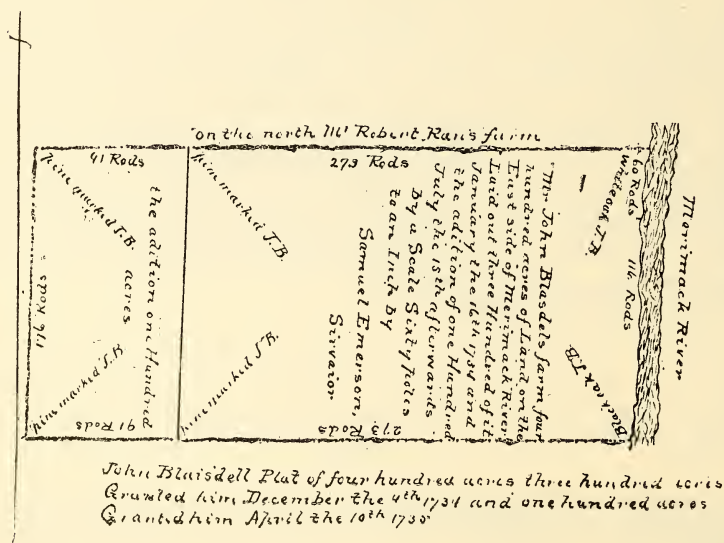 on the north Mr Robert Rans farm
41 Rods
pine marked J.B.
the adition one Hundred
acres
116 Rods
pine marked J.B
91 Rods
pine marked J.B.
pine marked J B.
273 Rods
273 Rods
"Mr John Blasdels farm four
hundred acres of Land on the
East side of Merimack River
Laid out three Hundred of it
January the 16th 1734 and
the adition of one Hundred
July the 15th afterwards
by a Scale Sixty poles
to an Inch by
Samuel Emerson,
Sirvaior
60 Rods
Whiteoak J.B.
116 Rods
Black oak J.B.
Merimack River
John Blaisdell Plat of four hundred acres three hundred acres
Granted him December the 4th 1734 and one hundred acres
Granted him April the 10th 1735